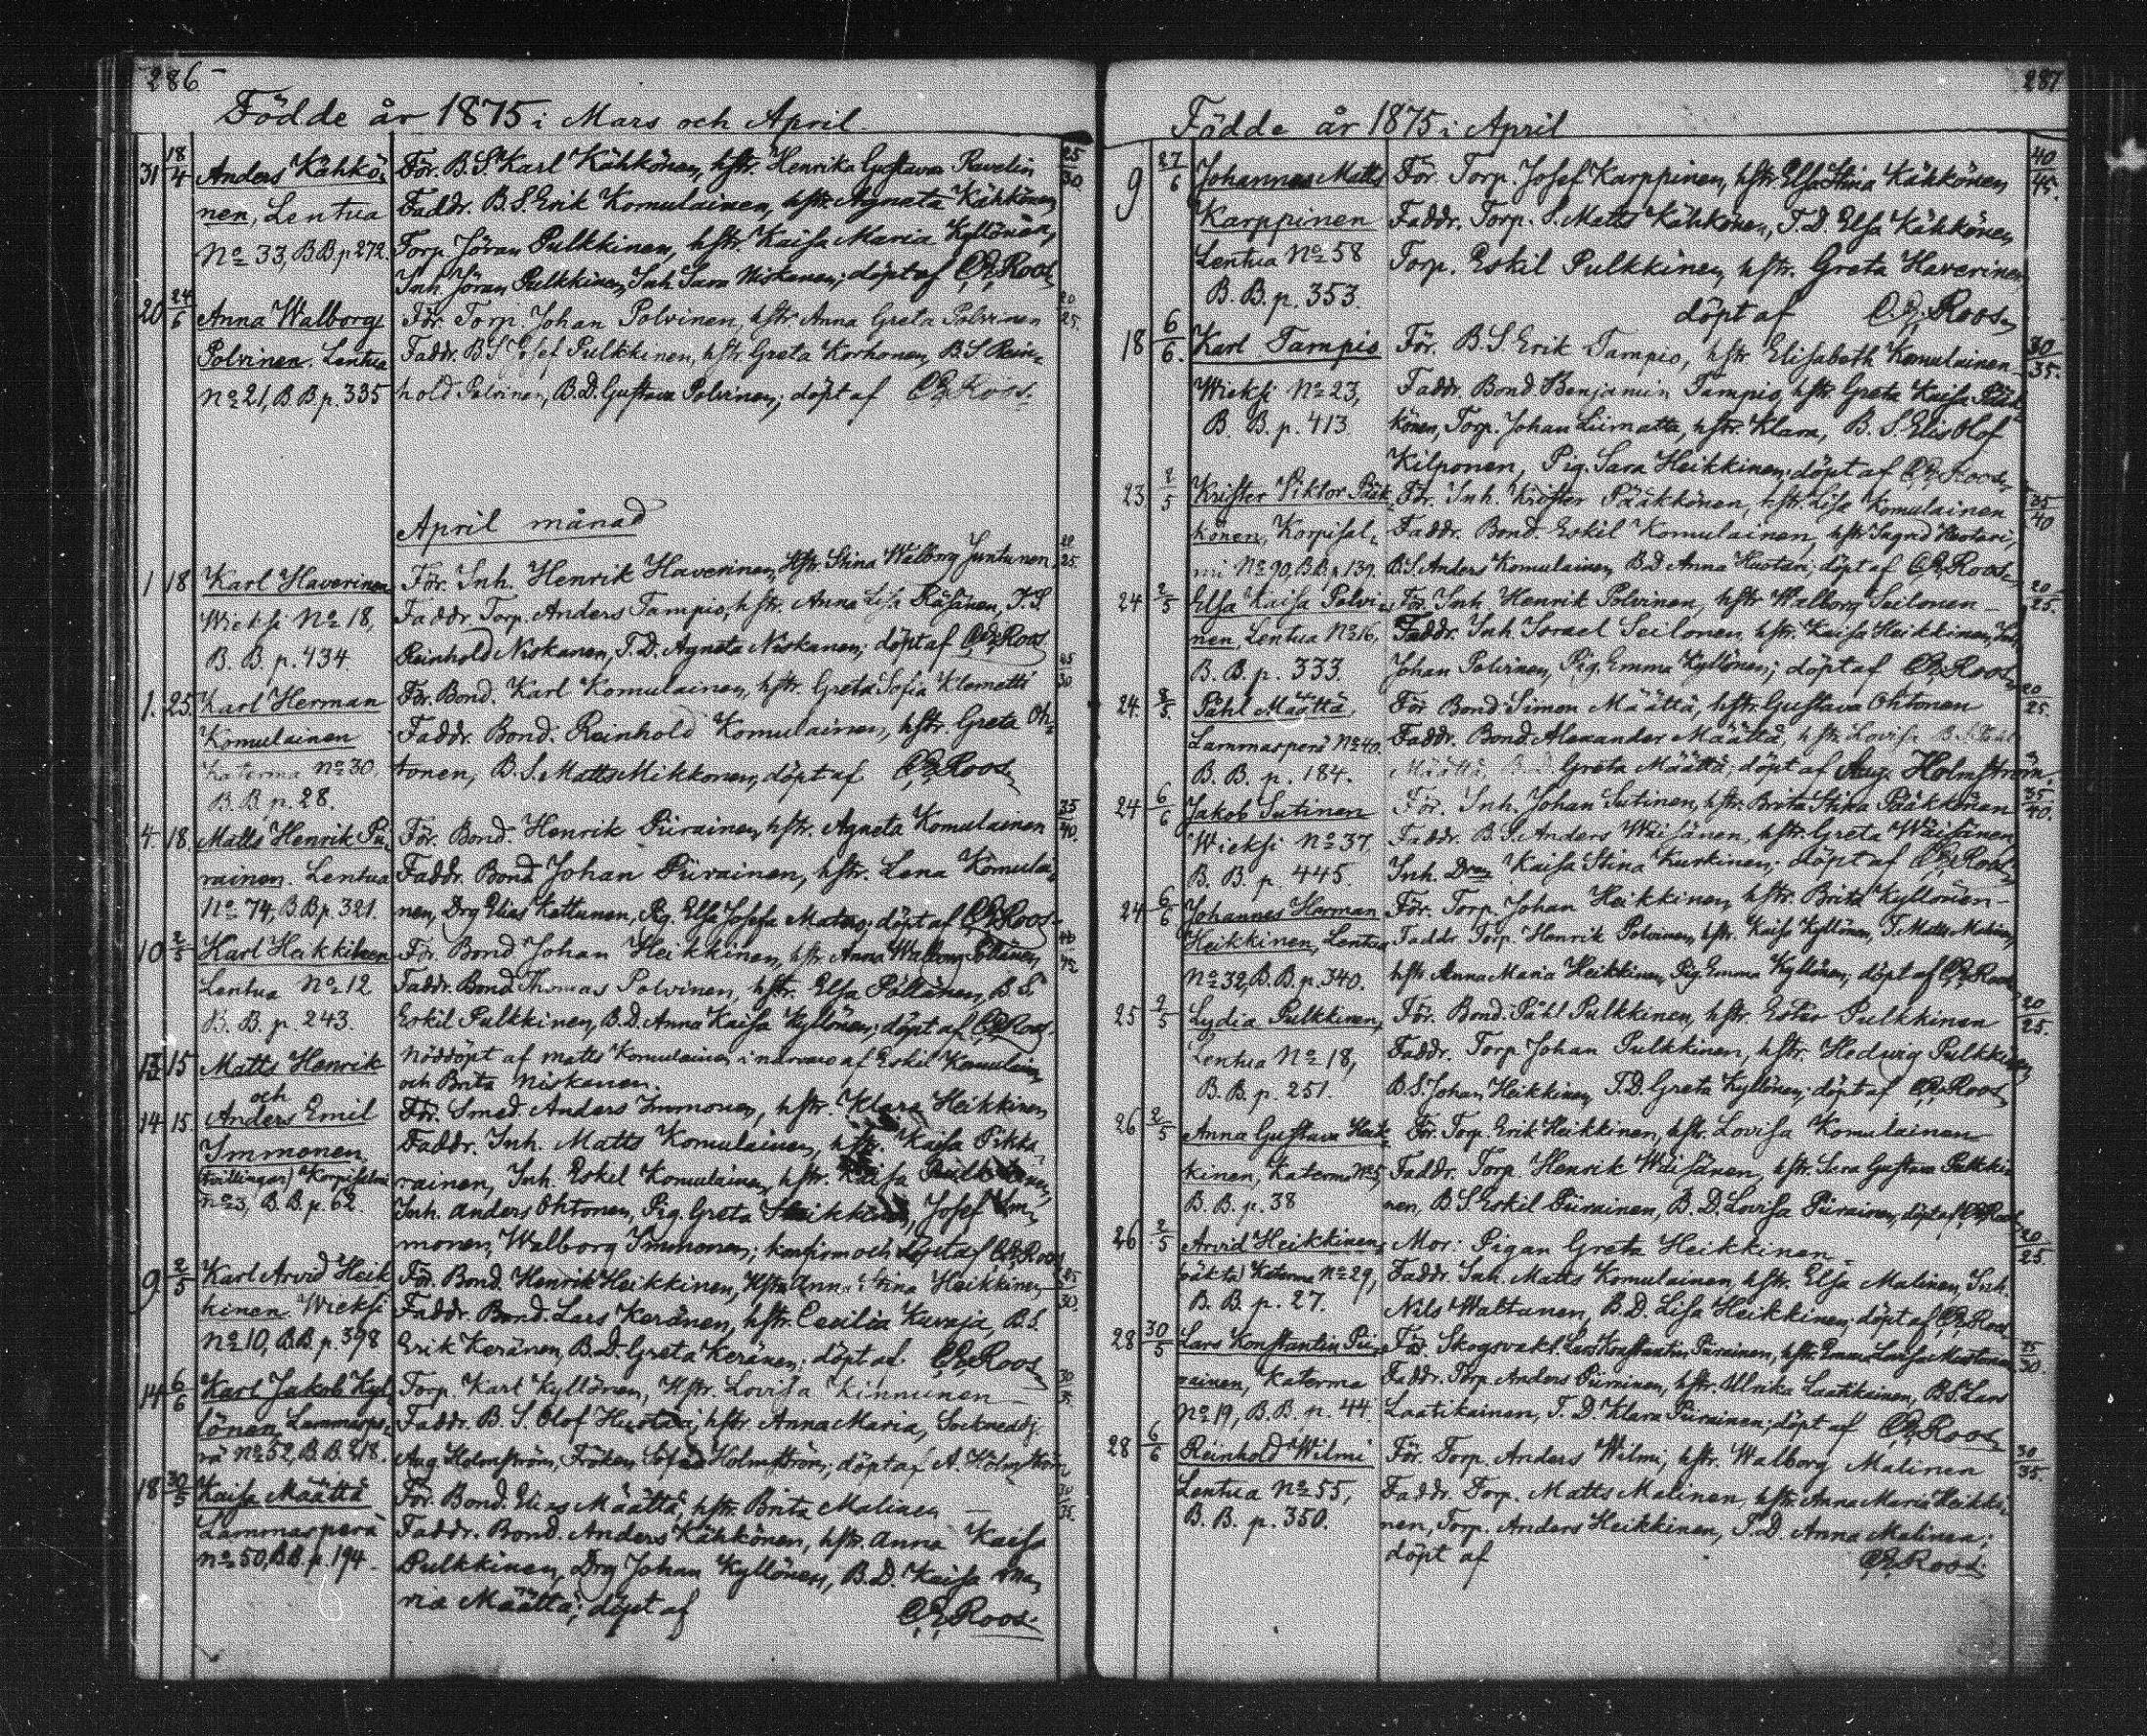 286
Födde år 1875 i Mars och April
31 18/4 Anders Kähkö- För. B.S. Karl Kähkönen, hstr. Henrika Gustava Ravelin 25/30
nen, Lentua Faddr. B.S. Erik Komulainen, hstr. Agneta Kähkönen,
No 33, B.B. p 272. Torp. Jöran Pulkkinen, hstr. Kaisa Maria Kyllönen,
Inh. Jöran Pulkkinen, Inh. Sara Niskanen; döpt af Roos
20 24/6 Anna Walborg För. Torp. Johan Polvinen, hstr. Anna Greta Polvinen 20/25.
Polvinen. Lentua Faddr. B.S. Josef Pulkkinen, hstr. Greta Korhonen, B.S. Rein-
No 21, B.B. p. 335 hold Polvinen, B.D. Gustava Polvinen; döpt af Roos.
April månad
1 18 Karl Haverinen För. Inh. Henrik Haverinen, Hstr. Stina Walborg Juntunen 20/25.
Wieksi No 18, Faddr. Torp. Anders Tampio, hstr. Anna Lisa Räsänen, T.S.
B. B. p. 434 Reinhold Niskanen, T.D. Agneta Niskanen; döpt af Roos
1. 25. Karl Herman För. Bond. Karl Komulainen, hstr. Greta Sofia Klemetti 25/30
Komulainen Faddr. Bond. Reinhold Komulainen, hstr. Greta Oh-
Katerma No 30, tonen, B.S. Matts Mikkonen; döpt af Roos
B. B. p. 28.
4. 18. Matts Henrik Pii- För. Bond. Henrik Piirainen, hstr. Agneta Komulainen 35/40.
rainen. Lentua Faddr. Bond Johan Piirainen, hstr. Lena Komulai-
No 74, B.B. p. 321. nen, Drg Elias Kettunen, Pig. Elsa Josefa Matero; döpt af Roos
10 2/5 Karl Heikkinen För. Bond. Johan Heikkinen, hstr. Anna Walborg Pöllänen,
Lentua No 12 Faddr. Bond. Thomas Polvinen, hstr. Elsa Pöllänen, B.S.
B. B. p. 243. Eskil Pulkkinen, B.D. Anna Kaisa Kyllönen; döpt af Roos.
13 15 Matts Henrik Nöddöpt af Matts Komulainen i närvaro af Eskil Komulain
och och Brita Niskanen.
14 15. Anders Emil För. Smed Anders Immonen, hstr. Klara Heikkinen
Immonen Faddr. Inh. Matts Komulainen, hstr. Kaisa Pikka-
(tvillingar) Korpisalmi rainen, Inh. Eskil Komulainen, hstr. Kaisa
No 3, B. B. p. 62. Inh. Anders Ohtonen, Pig. Greta Heikkinen, Josef Im-
monen, Walborg Immonen; konfirm och döpta af Roos
9 2/5 Karl Arvid Heik För. Bond. Henrik Heikkinen, Hstr Anna Stina Heikkinen 25/30.
kinen Wieksi Faddr. Bond. Lars Keränen, hstr. Cecilia Kuvaja, B.S.
No 10, B.B. p. 398 Erik Keränen, B.D. Greta Keränen; döpt af. Roos
14 6/6 Karl Jakob Kyl- Torp. Karl Kyllönen, Hstr. Lovisa Kinnunen 30/35.
lönen, Lammaspe- Faddr. B. S. Olof Huotari, hstr. Anna Maria, Sockneadj.
rä No 52, B. B. 218. Aug Holmström, Fröken Sofia Holmström; döpt af A. Holmström
18 30/5 Kaisa Määttä För. Bond. Elias Määttä, hstr. Brita Malinen 30/35.
Lammasperä Faddr. Bond. Anders Kähkönen, hstr. Anna Kaisa
No 50, B.B. p. 194. Pulkkinen, Drg Johan Kyllönen, B.D. Kaisa Ma-
ria Määttä; döpt af Roos.
287
Födde år 1875 i April
9 27/6 Johannes Matts För. Torp. Josef Karppinen, hstr. Elsa Stina Kähkönen 40/45.
Karppinen Faddr. Torp. S. Matts Kähkönen, T.D. Elsa Kähkönen,
Lentua No 58 Torp. Eskil Pulkkinen, hstr. Greta Haverinen
B. B. p. 353. döpt af Roos
18 6/6. Karl Tampio För. B.S. Erik Tampio, hstr Elisabeth Komulainen 30/35.
Wieksi No 23, Faddr. Bond. Benjamin Tampio, hstr. Greta Kaisa Pääk
B. B. p. 413. könen, Torp. Johan Liimatta, hstr. Klara, B. S. Elis Olof
Kilponen, Pig. Sara Heikkinen; döpt af Roos
23 2/5 Krister Viktor Pääk- För. Inh. Krister Pääkkönen, hstr. Lisa Komulainen 35/40
könen, Korpisal- Faddr. Bond. Eskil Komulainen, hstr Ingrid Huotari,
mi No 90, B.B. p. 139. B.S. Anders Komulainen, B.D. Anna Huotari; döpt af Roos
24 2/5 Elsa Kaisa Polvi- För. Inh. Henrik Polvinen, hstr Walborg Seilonen 20/25.
nen, Lentua No 16, Faddr. Inh. Israel Seilonen, hstr. Kaisa Heikkinen, Inh.
B. B. p. 333. Johan Polvinen, Pig. Emma Kyllönen; döpt af Roos
24. 8/5. Påhl Määttä, För Bond. Simon Määttä, hstr. Gustava Ohtonen 20/25.
Lammasperä No 40. Faddr. Bond. Alexander Määttä, hstr. Lovisa B.S. Påhl
B. B. p. 184. Määttä, B.D. Greta Määttä; döpt af Aug. Holmström.
24 6/6 Jakob Sutinen För. Inh. Johan Sutinen, hstr. Brita Stina Pääkkönen 35/40.
Wieksi No 37, Faddr. B.S. Anders Wäisänen, hstr. Greta Wäisänen,
B. B. p. 445. Inh. Kaisa Stina Kurkinen; döpt af Roos
24 6/6 Johannes Herman För. Torp. Johan Heikkinen, hstr. Brita Kyllönen
Heikkinen, Lentua Faddr. Torp. Henrik Polvinen, hstr. Kaisa Kyllönen, T. Matts Malinen,
No 32, B. B. p. 340. hstr Anna Maria Heikkinen, Pig Emma Kyllönen; döpt af Roos
25 2/5 Lydia Pulkkinen, För. Bond. Påhl Pulkkinen, hstr. Ester Pulkkinen 20/25.
Lentua No 18, Faddr. Torp Johan Pulkkinen, hstr. Hedwig Pulkkinen
B. B. p. 251. B.S. Johan Heikkinen, T.D. Greta Kyllönen; döpt af Roos
26 2/5 Anna Gustava Heik- För. Torp. Erik Heikkinen, hstr. Lovisa Komulainen
kinen, Katerma No 5, Faddr. Torp. Henrik Wäisänen, hstr. Sara Gustava Pulkki-
B. B. p. 38 nen, B.S. Eskil Piirainen, B.D. Lovisa Piirainen, döpt af Roos
26 2/5 Arvid Heikkinen, Mor: Pigan Greta Heikkinen 20/25.
(oäkta) Katerma No 29, Faddr. Inh. Matts Komulainen, hstr. Elsa Malinen, Inh.
B. B. p. 27. Nils Waltunen, B.D. Lisa Heikkinen; döpt af Roos
28 30/5 Lars Konstantin Pii- För. Skogsvakt. Lars Konstantin Piirainen, hstr. Emma Lovisa Mustonen 25/30.
rainen, Katerma Faddr. Torp. Anders Piirainen, hstr. Ulrika Laatikainen, B.S. Lars
No 19, B. B. p. 44. Laatikainen, T. D. Klara Piirainen; döpt af Roos
28 6/6 Reinhold Wilmi För. Torp. Anders Wilmi, hstr. Walborg Malinen 30/35.
Lentua No 55, Faddr. Torp. Matts Malinen, hstr. Anna Maria Heikki-
B. B. p. 350. nen, Torp. Anders Heikkinen, T.D. Anna Malinen;
döpt af Roos